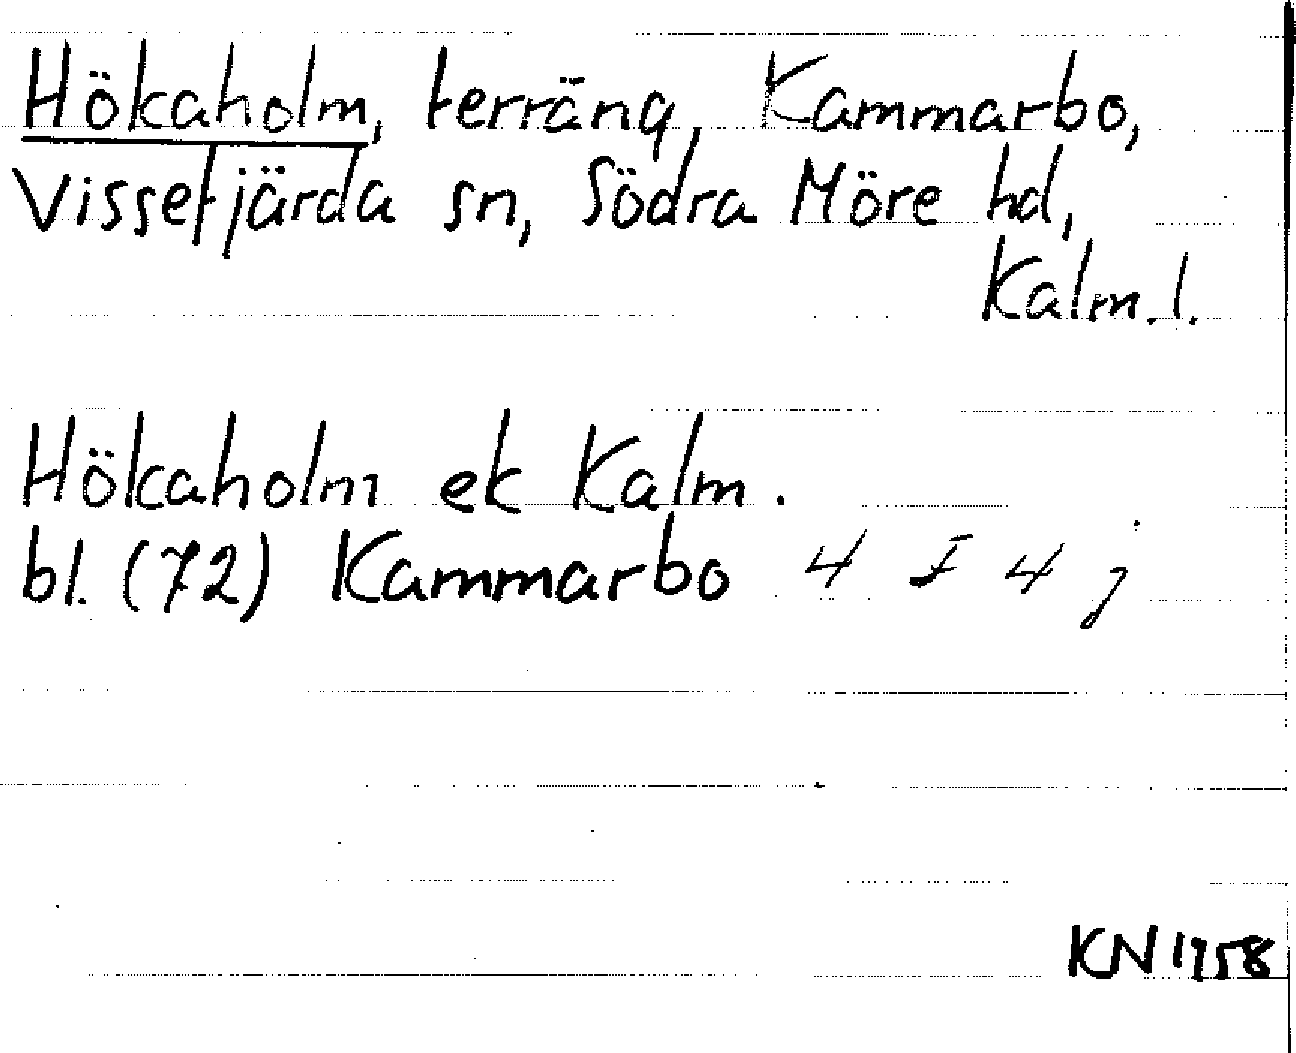 Hökaholm, terräng, Kammarbo,
Vissefjärda sn, Södra Möre hd,
Kalm. l.
Hökaholm ek Kalm.
bl. (72) Kammarbo 4 F 4 j
KN 1958